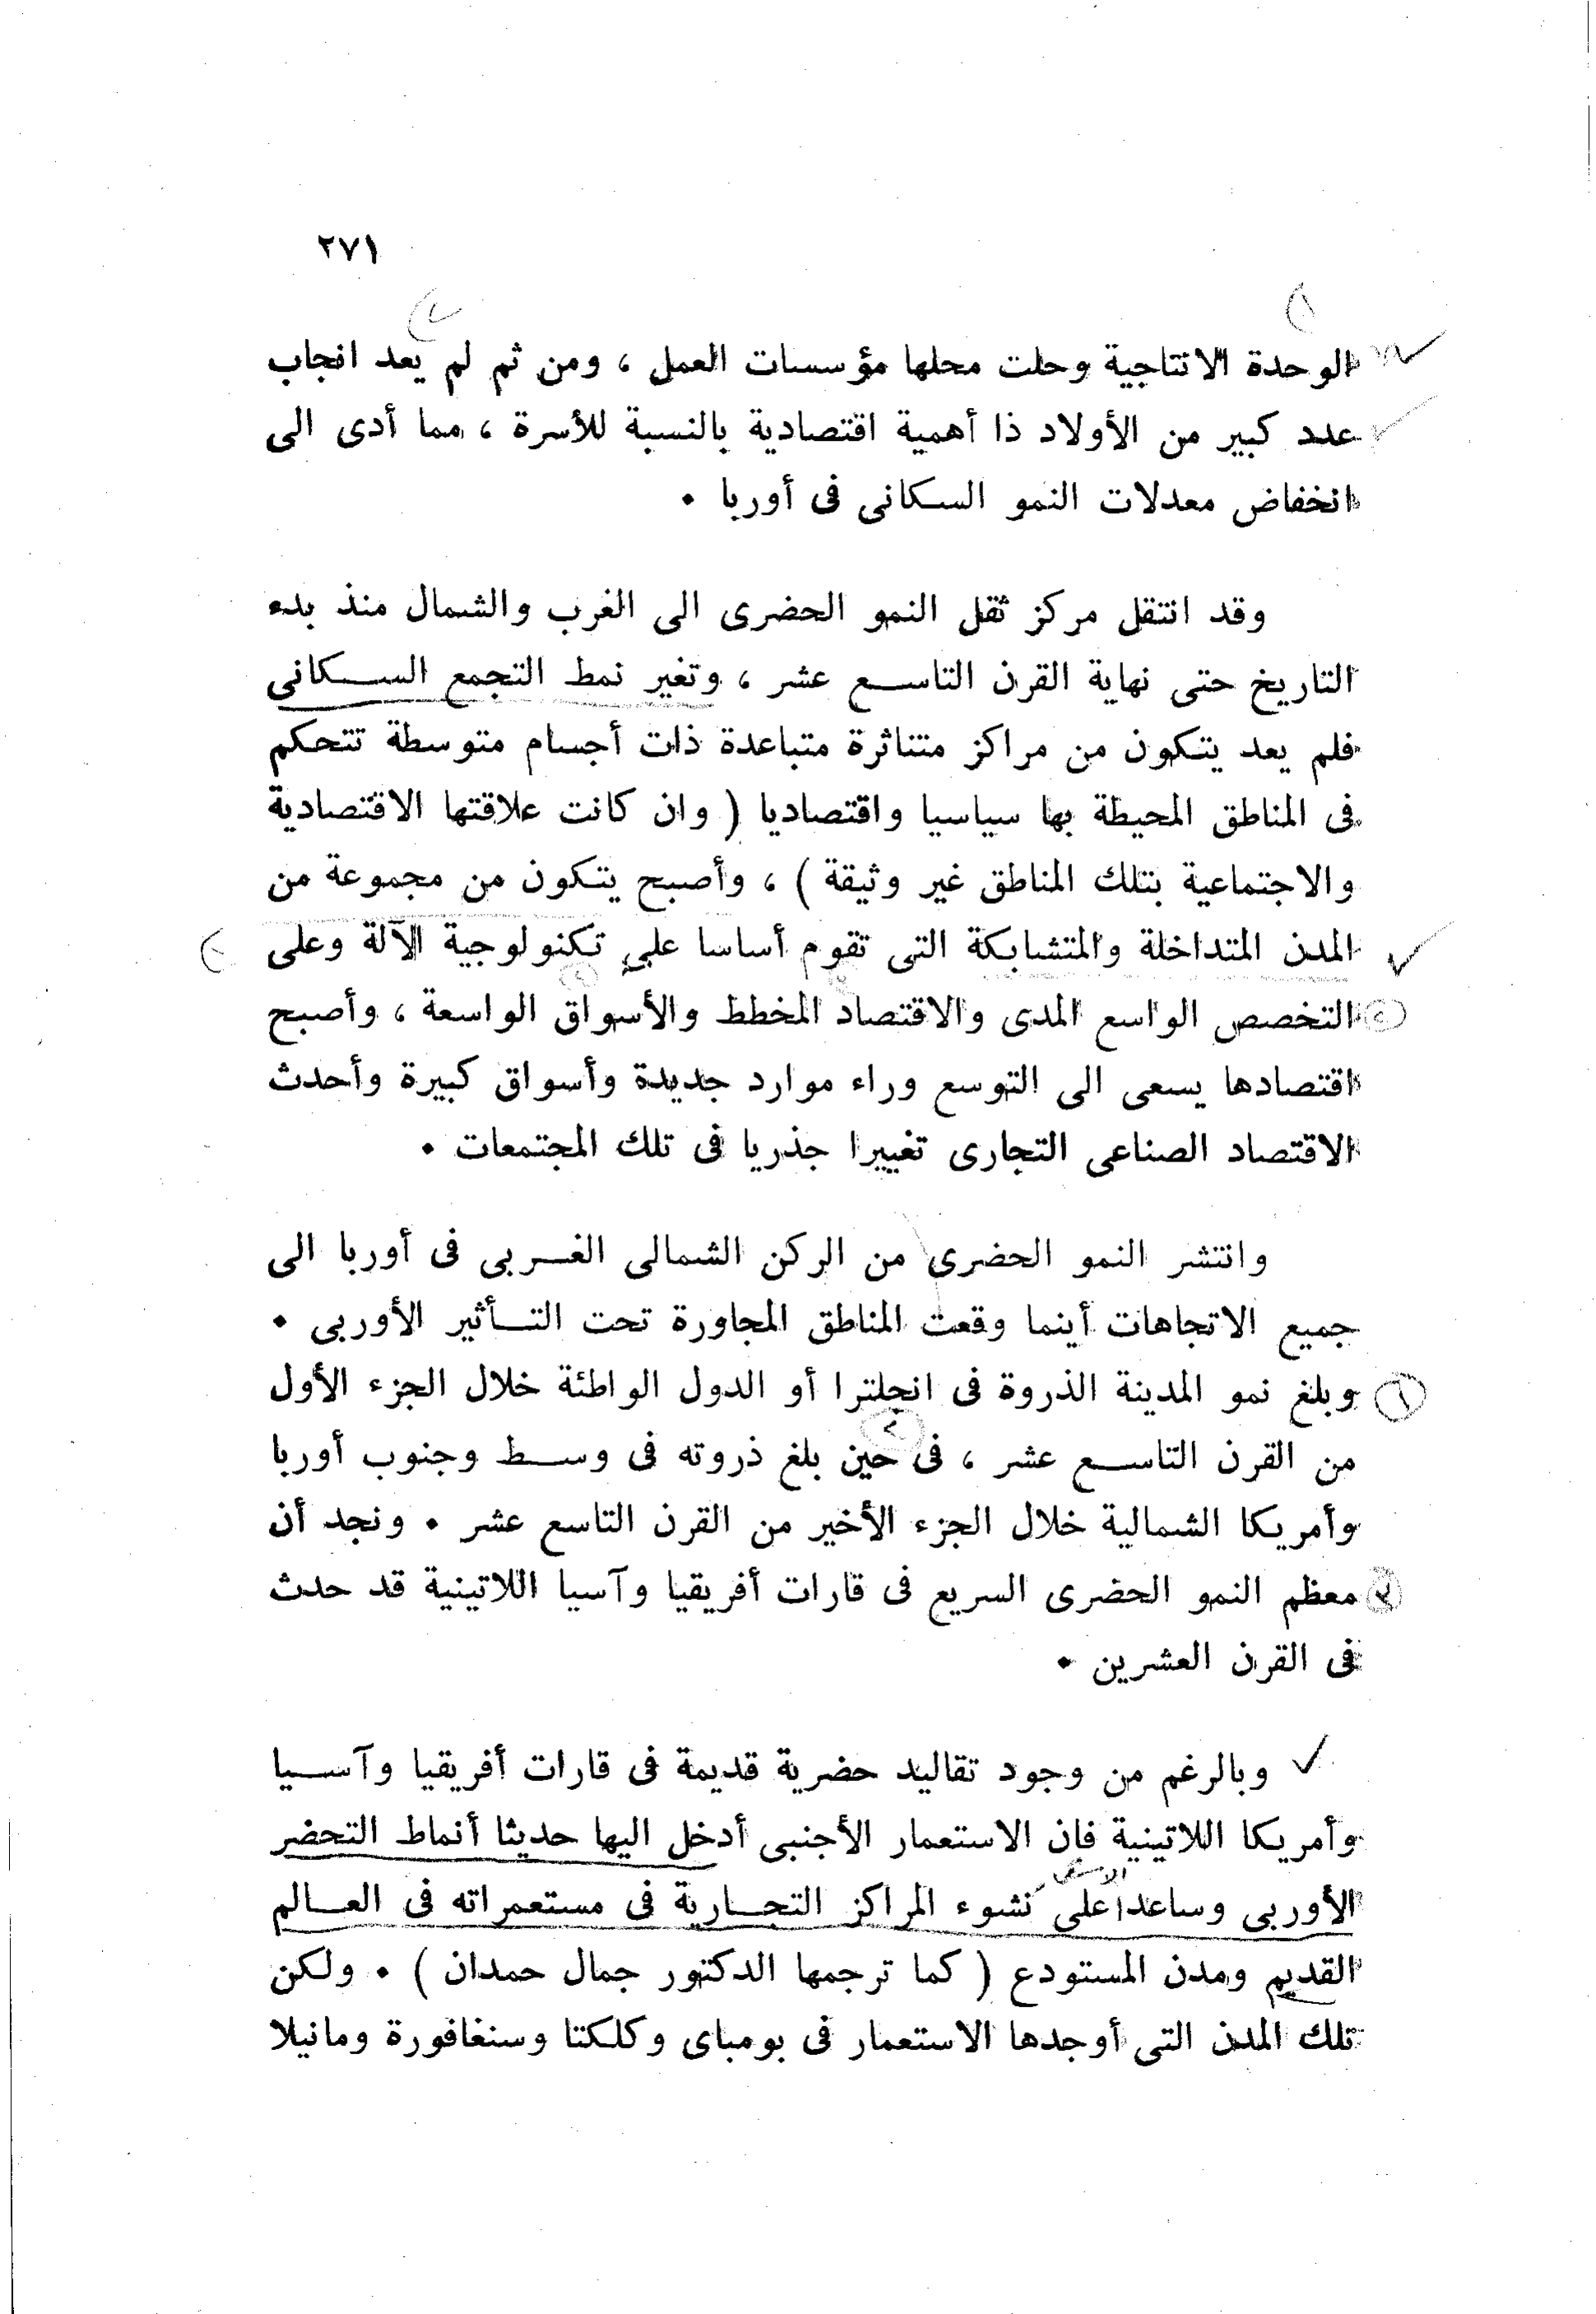 ٢٧١
الوحدة الانتاجية وحلت محلها مؤسسات العمل ، ومن ثم لم يعد انجاب
عدد كبير من الأولاد ذا أهمية اقتصادية بالنسبة للأسرة ، مما أدى الى
انخفاض معدلات النمو السكانى فى أوربا ٠
وقد انتقل مركز ثقل النمو الحضرى الى الغرب والشمال منذ بدء
التاريخ حتى نهاية القرن التاسع عشر ، وتغير نمط التجمع السكانى
فلم يعد يتكون من مراكز متناثرة متباعدة ذات أجسام متوسطة تتحكم
فى المناطق المحيطة بها سياسيا واقتصاديا ( وان كانت علاقتها الاقتصادية
والاجتماعية بتلك المناطق غير وثيقة ) ، وأصبح يتكون من مجموعة من
المدن المتداخلة والمتشابكة التى تقوم أساسا على تكنولوجية الآلة وعلى
التخصص الواسع المدى والاقتصاد المخطط والأسواق الواسعة ، وأصبح
اقتصادها يسعى الى التوسع وراء موارد جديدة وأسواق كبيرة وأحدث
الاقتصاد الصناعى التجارى تغييرا جذريا فى تلك المجتمعات ٠
وانتشر النمو الحضرى من الركن الشمالى الغربى فى أوربا الى
جميع الاتجاهات أينما وقعت المناطق المجاورة تحت التأثير الأوربى ٠
وبلغ نمو المدينة الذروة فى انجلترا أو الدول الواطئة خلال الجزء الأول
من القرن التاسع عشر ، فى حين بلغ ذروته فى وسط وجنوب أوربا
وأمريكا الشمالية خلال الجزء الأخير من القرن التاسع عشر ٠ ونجد أن
معظم النمو الحضرى السريع فى قارات أفريقيا وآسيا اللاتينية قد حدث
فى القرن العشرين ٠
وبالرغم من وجود تقاليد حضرية قديمة فى قارات أفريقيا وآسيا
وأمريكا اللاتينية فان الاستعمار الأجنبى أدخل اليها حديثا أنماط التحضر
الأوربى وساعد على نشوء المراكز التجارية فى مستعمراته فى العالم
القديم ومدن المستودع ( كما ترجمها الدكتور جمال حمدان ) ٠ ولكن
تلك المدن التى أوجدها الاستعمار فى بومباى وكلكتا وسنغافورة ومانيلا